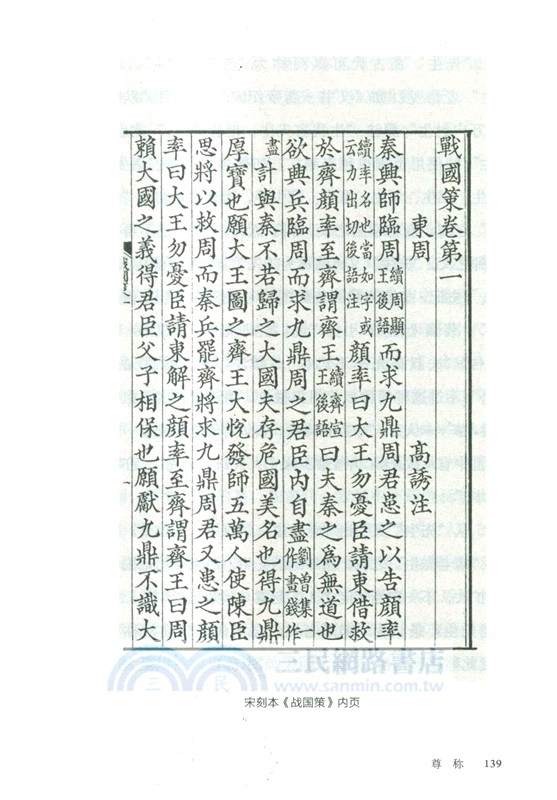 戰國策卷第一
東周 高誘注
秦興師臨周續周顯王後語而求九鼎周君患之以告顏率
續率名也當如字或云力出切後語注顏率曰大王勿憂臣請東借救
於齊顏率至齊謂齊王續齊宣王後語曰夫秦之爲無道也
欲興兵臨周而求九鼎周之君臣內自盡劉曾集一作畫錢作
盡計與秦不若歸之大國夫存危國美名也得九鼎
厚寶也願大王圖之齊王大悅發師五萬人使陳臣
思將以救周而秦兵罷齊將求九鼎周君又患之顏
率曰大王勿憂臣請東解之顏率至齊謂齊王曰周
賴大國之義得君臣父子相保也願獻九鼎不識大
三民網路書店
三 民
www.sanmin.com.tw
宋刻本《战国策》内页
尊 称 139